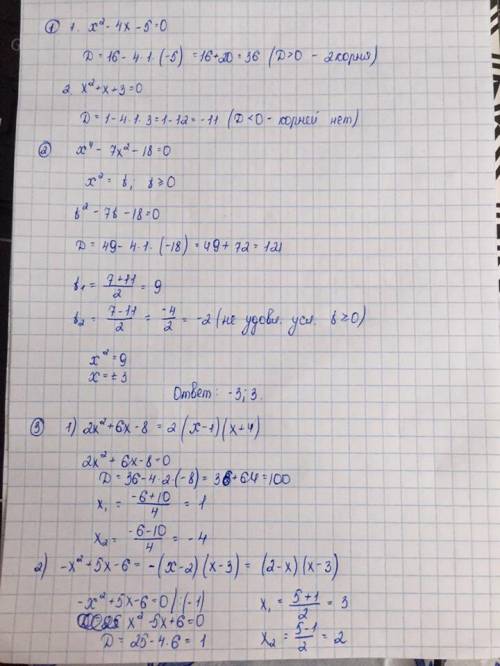 ① 1. x² - 4x - 5 = 0
D = 16 - 4·1·(-5) = 16+20 = 36 (D>0 - 2 корня)
2. x² + x + 3 = 0
D = 1 - 4·1·3 = 1 - 12 = -11 (D<0 - корней нет)
② x⁴ - 7x² - 18 = 0
x² = t; t ≥ 0
t² - 7t - 18 = 0
D = 49 - 4·1·(-18) = 49 + 72 = 121
t₁ = (7+11)/2 = 9
t₂ = (7-11)/2 = -4/2 = -2 (не удовл. усл. t ≥ 0)
x² = 9
x = ±3
Ответ: -3; 3.
③ 1) 2x² + 6x - 8 = 2(x-1)(x+4)
2x² + 6x - 8 = 0
D = 36 - 4·2·(-8) = 36 + 64 = 100
x₁ = (-6+10)/4 = 1
x₂ = (-6-10)/4 = -4
2) -x² + 5x - 6 = -(x-2)(x-3) = (2-x)(x-3)
-x² + 5x - 6 = 0 /:(-1)
x² - 5x + 6 = 0
D = 25 - 4·6 = 1
x₁ = (5+1)/2 = 3
x₂ = (5-1)/2 = 2